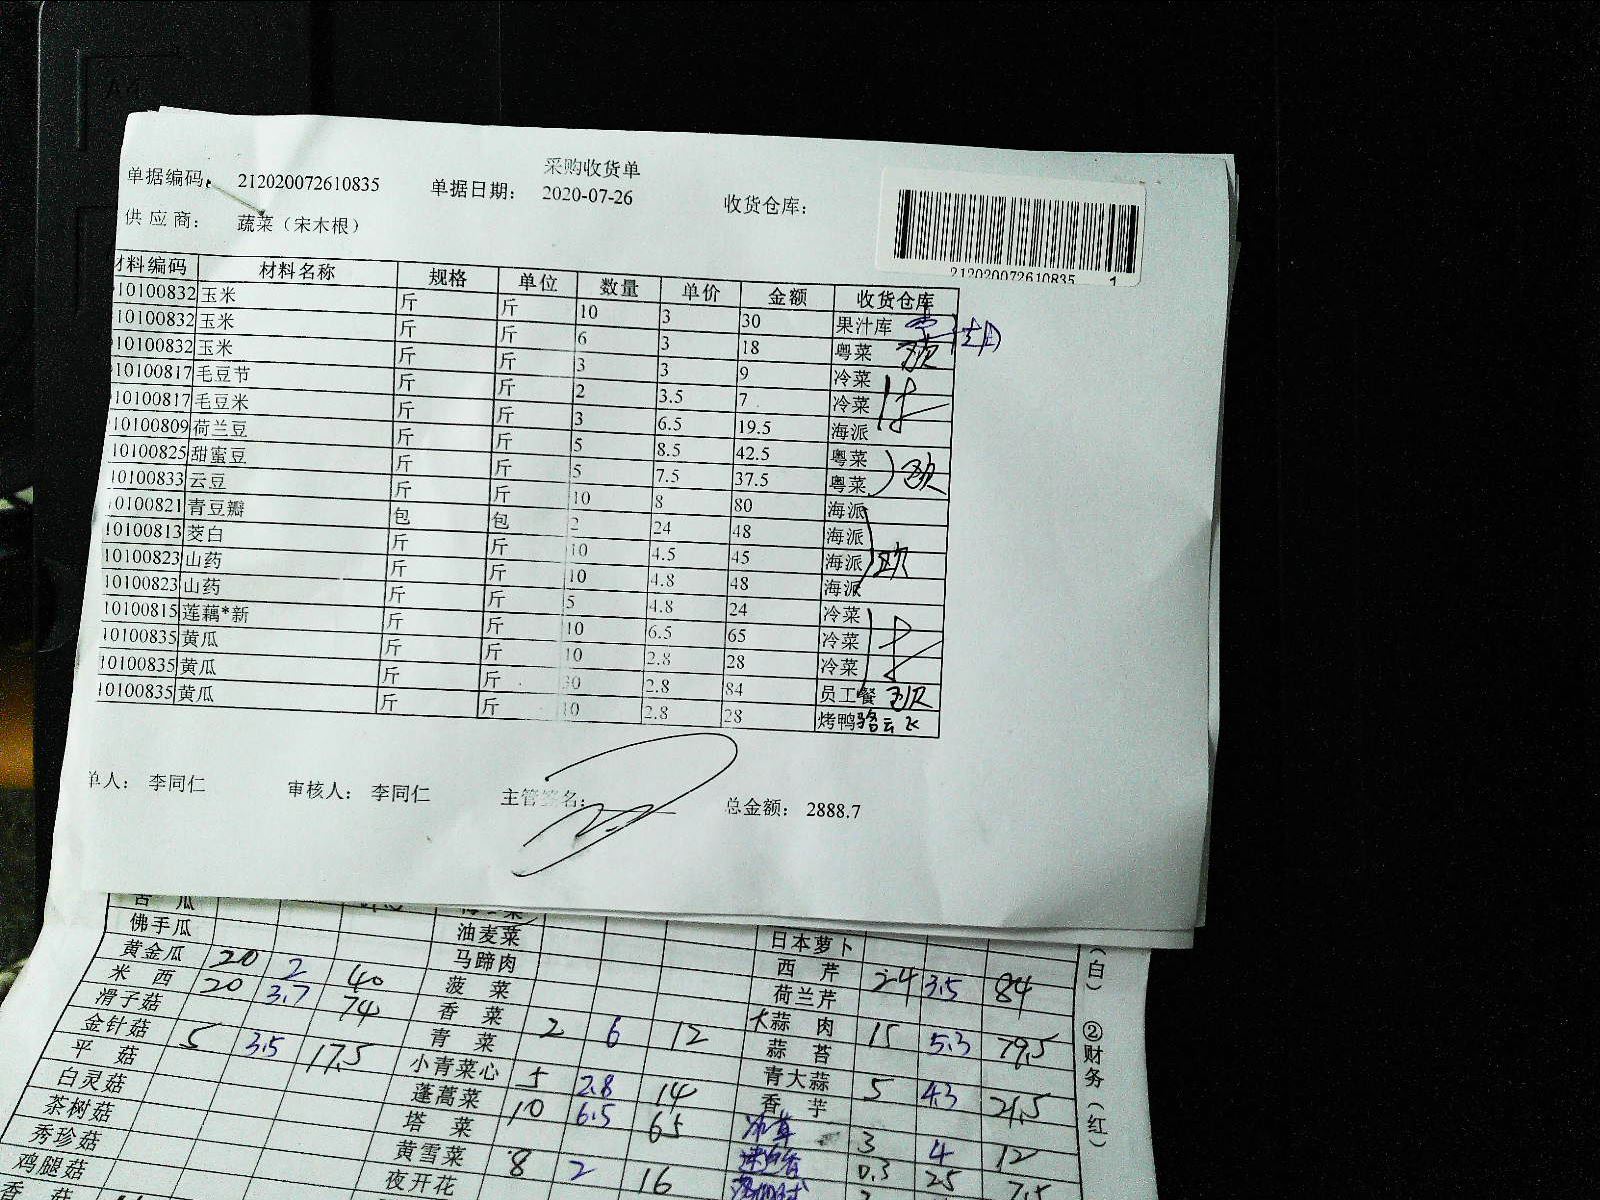 采购收货单
单据编码: 212020072610835 单据日期: 2020-07-26 收货仓库:
供应商: 蔬菜（宋木根）
212020072610835 1
材料编码 材料名称 规格 单位 数量 单价 金额 收货仓库
10100832 玉米 斤 斤 10 3 30 果汁库
10100832 玉米 斤 斤 6 3 18 粤菜
10100832 玉米 斤 斤 3 3 9 冷菜
10100817 毛豆节 斤 斤 2 3.5 7 冷菜
10100817 毛豆米 斤 斤 3 6.5 19.5 海派
10100809 荷兰豆 斤 斤 5 8.5 42.5 粤菜
10100825 甜蜜豆 斤 斤 5 7.5 37.5 粤菜
10100833 云豆 斤 斤 10 8 80 海派
10100821 青豆瓣 包 包 2 24 48 海派
10100813 茭白 斤 斤 10 4.5 45 海派
10100823 山药 斤 斤 10 4.8 48 海派
10100823 山药 斤 斤 5 4.8 24 冷菜
10100815 莲藕*新 斤 斤 10 6.5 65 冷菜
10100835 黄瓜 斤 斤 10 2.8 28 冷菜
10100835 黄瓜 斤 斤 30 2.8 84 员工餐
10100835 黄瓜 斤 斤 10 2.8 28 烤鸭 骆云飞
单人: 李同仁 审核人: 李同仁 主管签名: 总金额: 2888.7
苦 瓜
佛手瓜 油麦菜 日本萝卜
黄金瓜 20 2 40 马蹄肉 西 芹 24 3.5 84
米 西 20 3.7 74 菠 菜 荷兰芹
滑子菇 香 菜 2 6 12 大蒜 肉 15 5.3 79.5
金针菇 5 3.5 17.5 青 菜 蒜 苔
平 菇 小青菜心 5 2.8 14 青大蒜 5 4.3 21.5
白灵菇 蓬蒿菜 10 6.5 65 香 芋
茶树菇 塔 菜 3 4 12
秀珍菇 黄雪菜 8 2 16 0.3 25 7.5
鸡腿菇 夜开花
香 菇
（白） ②财务（红）